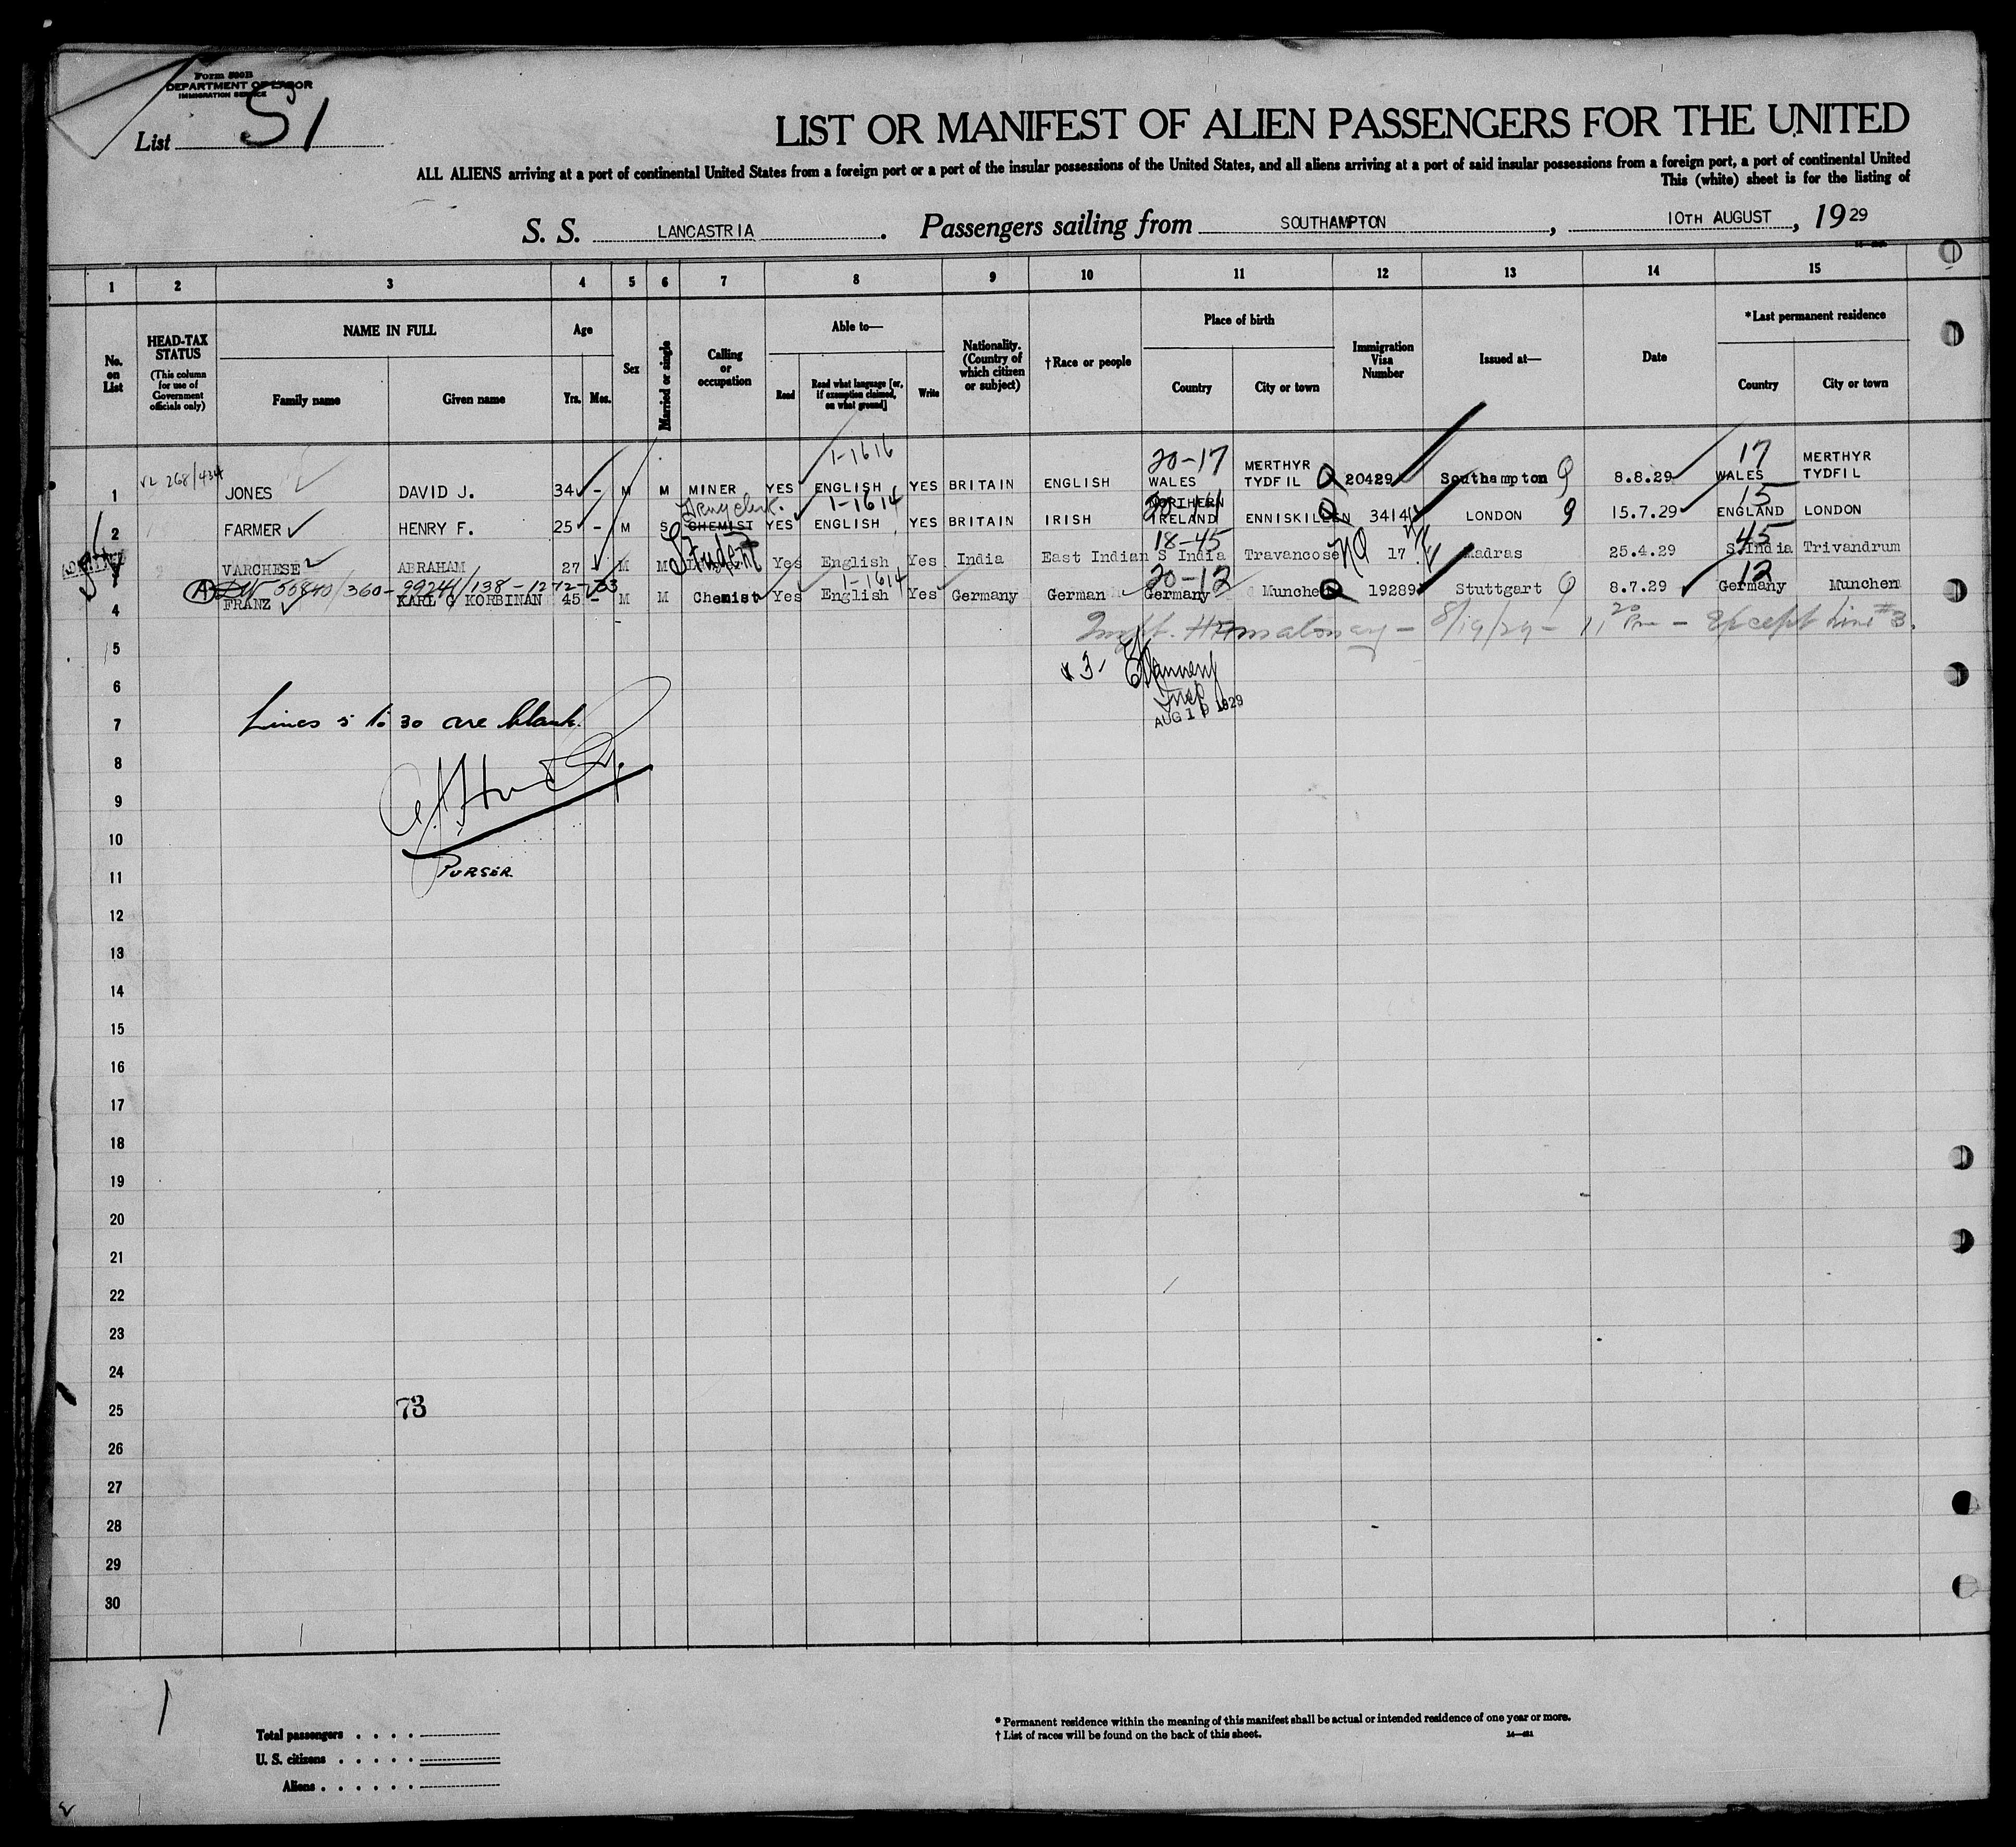 Form 500B
DEPARTMENT OF LABOR
IMMIGRATION SERVICE
List 51
LIST OR MANIFEST OF ALIEN PASSENGERS FOR THE UNITED
ALL ALIENS arriving at a port of continental United States from a foreign port or a port of the insular possessions of the United States, and all aliens arriving at a port of said insular possessions from a foreign port, a port of continental United
This (white) sheet is for the listing of
S. S. LANCASTRIA. Passengers sailing from SOUTHAMPTON, 10TH AUGUST, 1929
1 2 3 4 5 6 7 8 9 10 11 12 13 14 15
No. on List
HEAD-TAX STATUS
(This column for use of Government officials only)
NAME IN FULL
Family name Given name
Age
Yrs. Mos.
Sex
Married or single
Calling or occupation
Able to—
Read Read what language [or, if exemption claimed, on what ground] Write
Nationality. (Country of which citizen or subject)
†Race or people
Place of birth
Country City or town
Immigration Visa Number
Issued at—
Date
*Last permanent residence
Country City or town
1-1616 20-17 17
1 V2 268/434 JONES DAVID J. 34 - M M MINER YES ENGLISH YES BRITAIN ENGLISH WALES MERTHYR TYDFIL Q 20429 Southampton 8.8.29 WALES MERTHYR TYDFIL
Drug clerk. 1-1614 15
2 FARMER HENRY F. 25 - M S CHEMIST YES ENGLISH YES BRITAIN IRISH NORTHERN IRELAND ENNISKILLEN Q 3414 LONDON 15.7.29 ENGLAND LONDON
Student 18-45 45
VARCHESE ABRAHAM 27 M M Yes English Yes India East Indian S India Travancose NQ 17 Madras 25.4.29 S.India Trivandrum
55840/360-99241/138-12-12-33 1-1614 20-12 12
4 FRANZ KARL O KORBINAN 45 - M M Chemist Yes English Yes Germany German Germany Munchen Q 19289 Stuttgart 8.7.29 Germany Munchen
8/19/29 - 11 20 Pm - Except Line #3.
5
# 3-
6
Insp
AUG 19 1929
7 Lines 5 to 30 are blank.
8
9
10
11 PURSER
12
13
14
15
16
17
18
19
20
21
22
23
24
25 73
26
27
28
29
30
Total passengers . . . .
U. S. citizens . . . . .
Aliens . . . . . .
* Permanent residence within the meaning of this manifest shall be actual or intended residence of one year or more.
† List of races will be found on the back of this sheet.